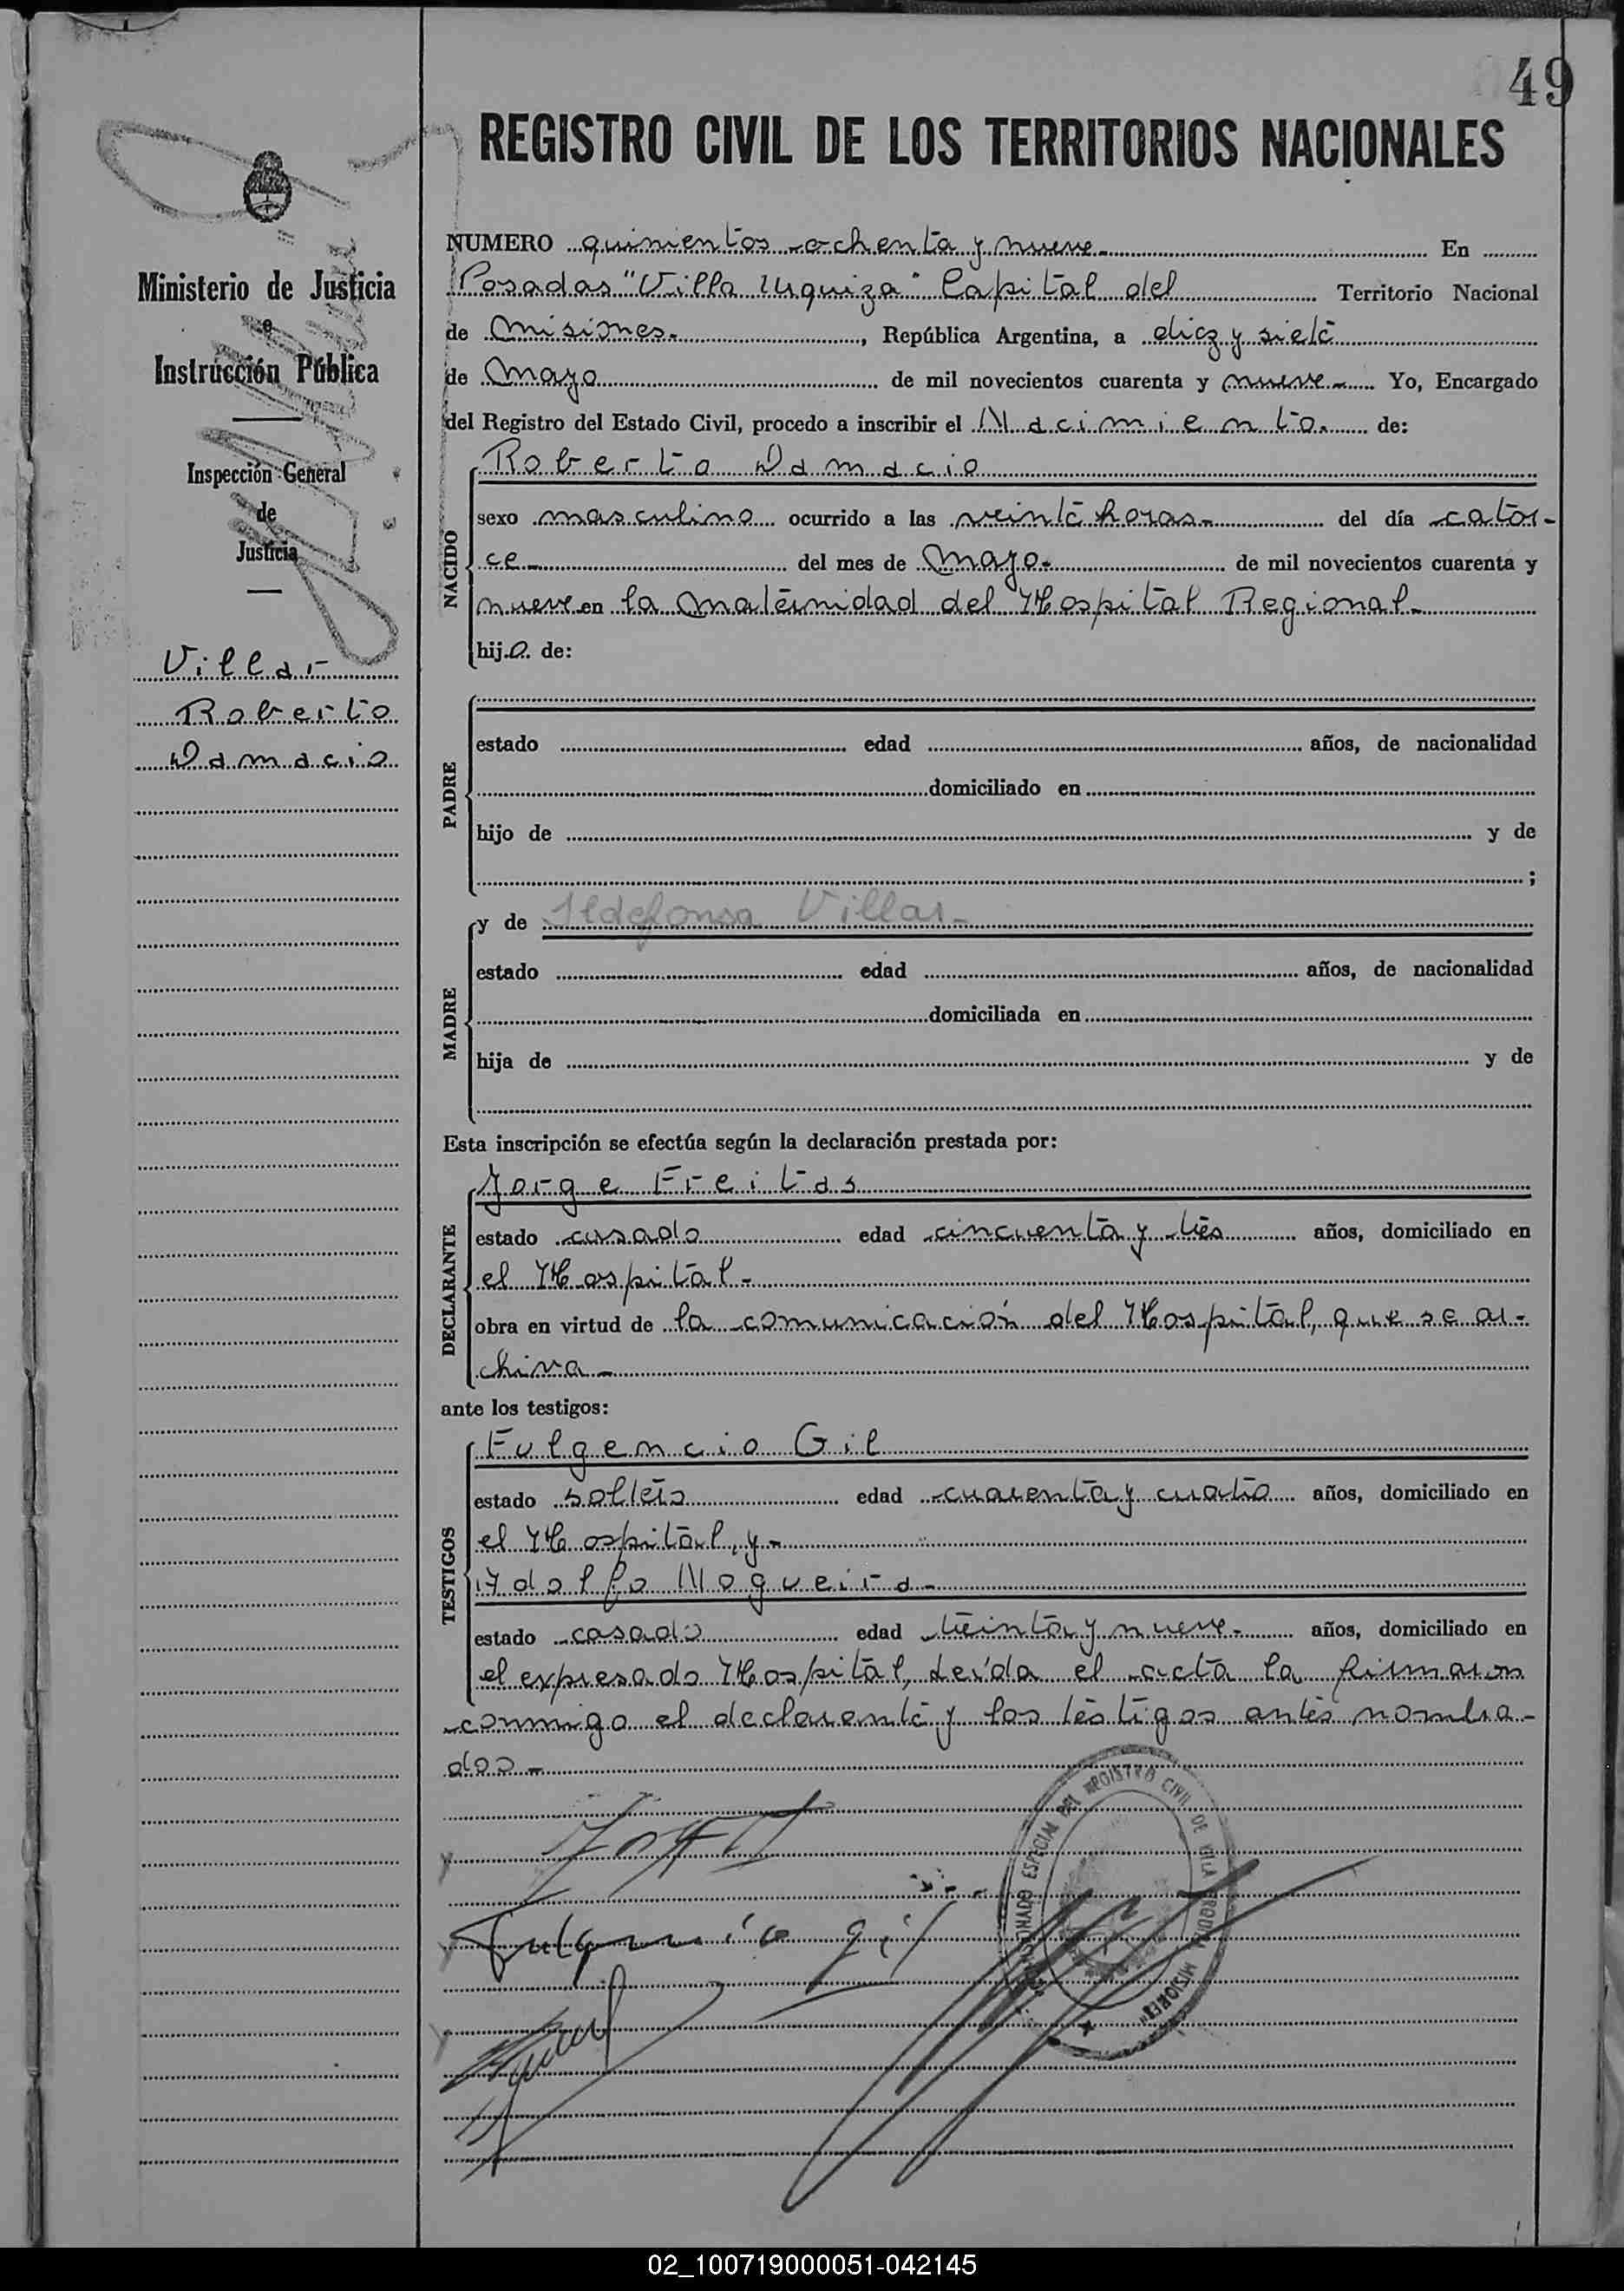 49
REGISTRO CIVIL DE LOS TERRITORIOS NACIONALES
Ministerio de Justicia
e
Instrucción Pública
Inspección General
de
Justicia
Villar
Roberto
Damacio
NUMERO quinientos ochenta y nueve- En
Posadas "Villa Urquiza" Capital del Territorio Nacional
de Misiones.-, República Argentina, a diez y siete
de Mayo de mil novecientos cuarenta y nueve- Yo, Encargado
del Registro del Estado Civil, procedo a inscribir el Nacimiento. de:
NACIDO
Roberto Damacio
sexo masculino ocurrido a las veinte horas- del día cator-
ce- del mes de Mayo.- de mil novecientos cuarenta y
nueve en la Maternidad del Hospital Regional-
hijo de:
PADRE
estado edad años, de nacionalidad
domiciliado en
hijo de y de
;
MADRE
y de Ildefonsa Villar-
estado edad años, de nacionalidad
domiciliada en
hija de y de
Esta inscripción se efectúa según la declaración prestada por:
DECLARANTE
Jorge Freitas
estado casado edad cincuenta y tres años, domiciliado en
el Hospital-
obra en virtud de la comunicación del Hospital, que se ar-
chiva-
ante los testigos:
TESTIGOS
Fulgencio Gil
estado soltero edad cuarenta y cuatro años, domiciliado en
el Hospital, y-
Adolfo Nogueira-
estado casado edad treinta y nueve- años, domiciliado en
el expresado Hospital, Leída el acta la firmaron
conmigo el declarante y los testigos antes nombra-
dos-
Fulgencio Gil
ESPECIAL DEL REGISTRO CIVIL DE VILLA URQUIZA MISIONES
02_100719000051-042145